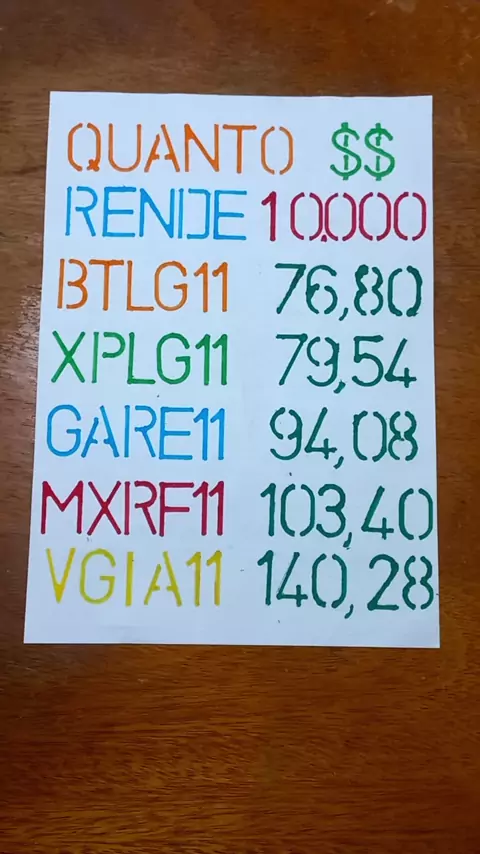 QUANTO $$
RENDE 10.000
BTLG11 76,80
XPLG11 79,54
GARE11 94,08
MXRF11 103,40
VGIA11 140,28